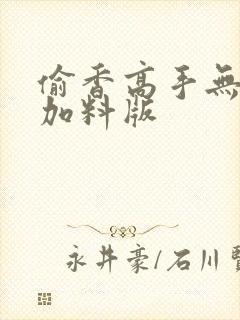 偷香高手無
加料版
永井豪/石川賢